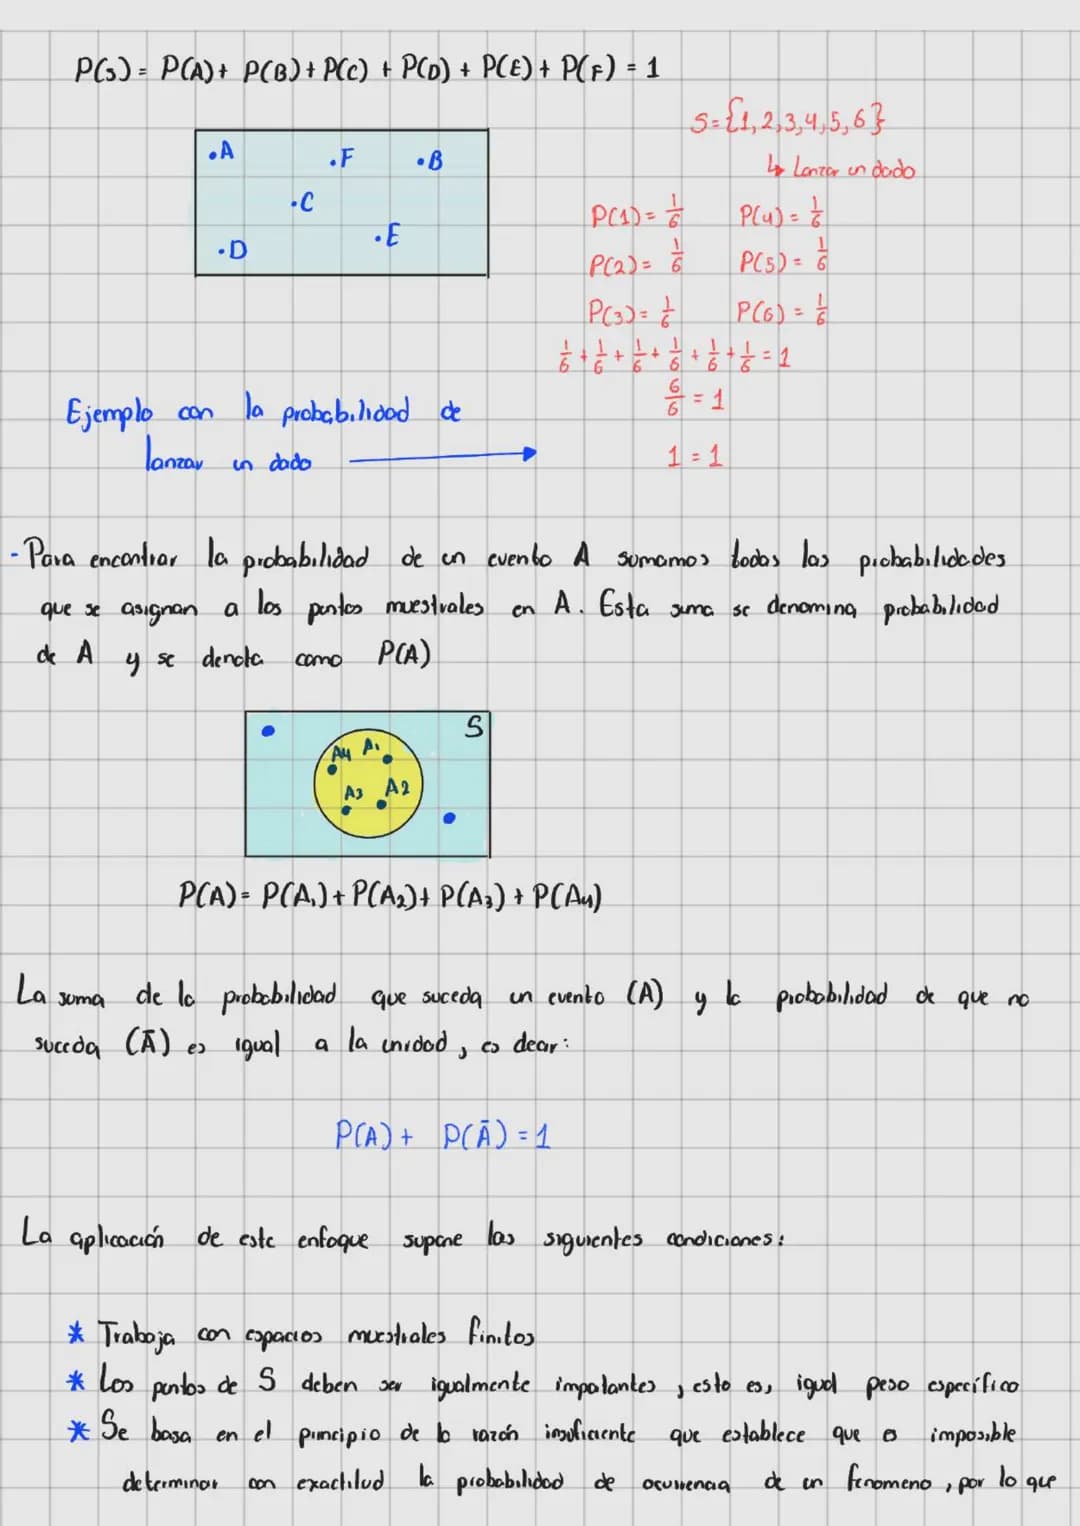 P(S) = P(A) + P(B) + P(C) + P(D) + P(E) + P(F) = 1
S = {1, 2, 3, 4, 5, 6}
↳ Lanzar un dado
•A •F •B
•C
•D •E
P(1) = 1/6 P(4) = 1/6
P(2) = 1/6 P(5) = 1/6
P(3) = 1/6 P(6) = 1/6
1/6 + 1/6 + 1/6 + 1/6 + 1/6 + 1/6 = 1
6/6 = 1
1 = 1
Ejemplo con la probabilidad de
lanzar un dado →
- Para encontrar la probabilidad de un evento A sumamos todas las probabilidades
que se asignan a los puntos muestrales en A. Esta suma se denomina probabilidad
de A y se denota como P(A)
S
A4 A1
A3 A2
P(A) = P(A1) + P(A2) + P(A3) + P(A4)
La suma de la probabilidad que suceda un evento (A) y la probabilidad de que no
suceda (Ā) es igual a la unidad, es decir:
P(A) + P(Ā) = 1
La aplicación de este enfoque supone las siguientes condiciones:
* Trabaja con espacios muestrales finitos
* Los puntos de S deben ser igualmente importantes, esto es, igual peso específico
* Se basa en el principio de la razón insuficiente que establece que es imposible
determinar con exactitud la probabilidad de ocurrencia de un fenomeno, por lo que